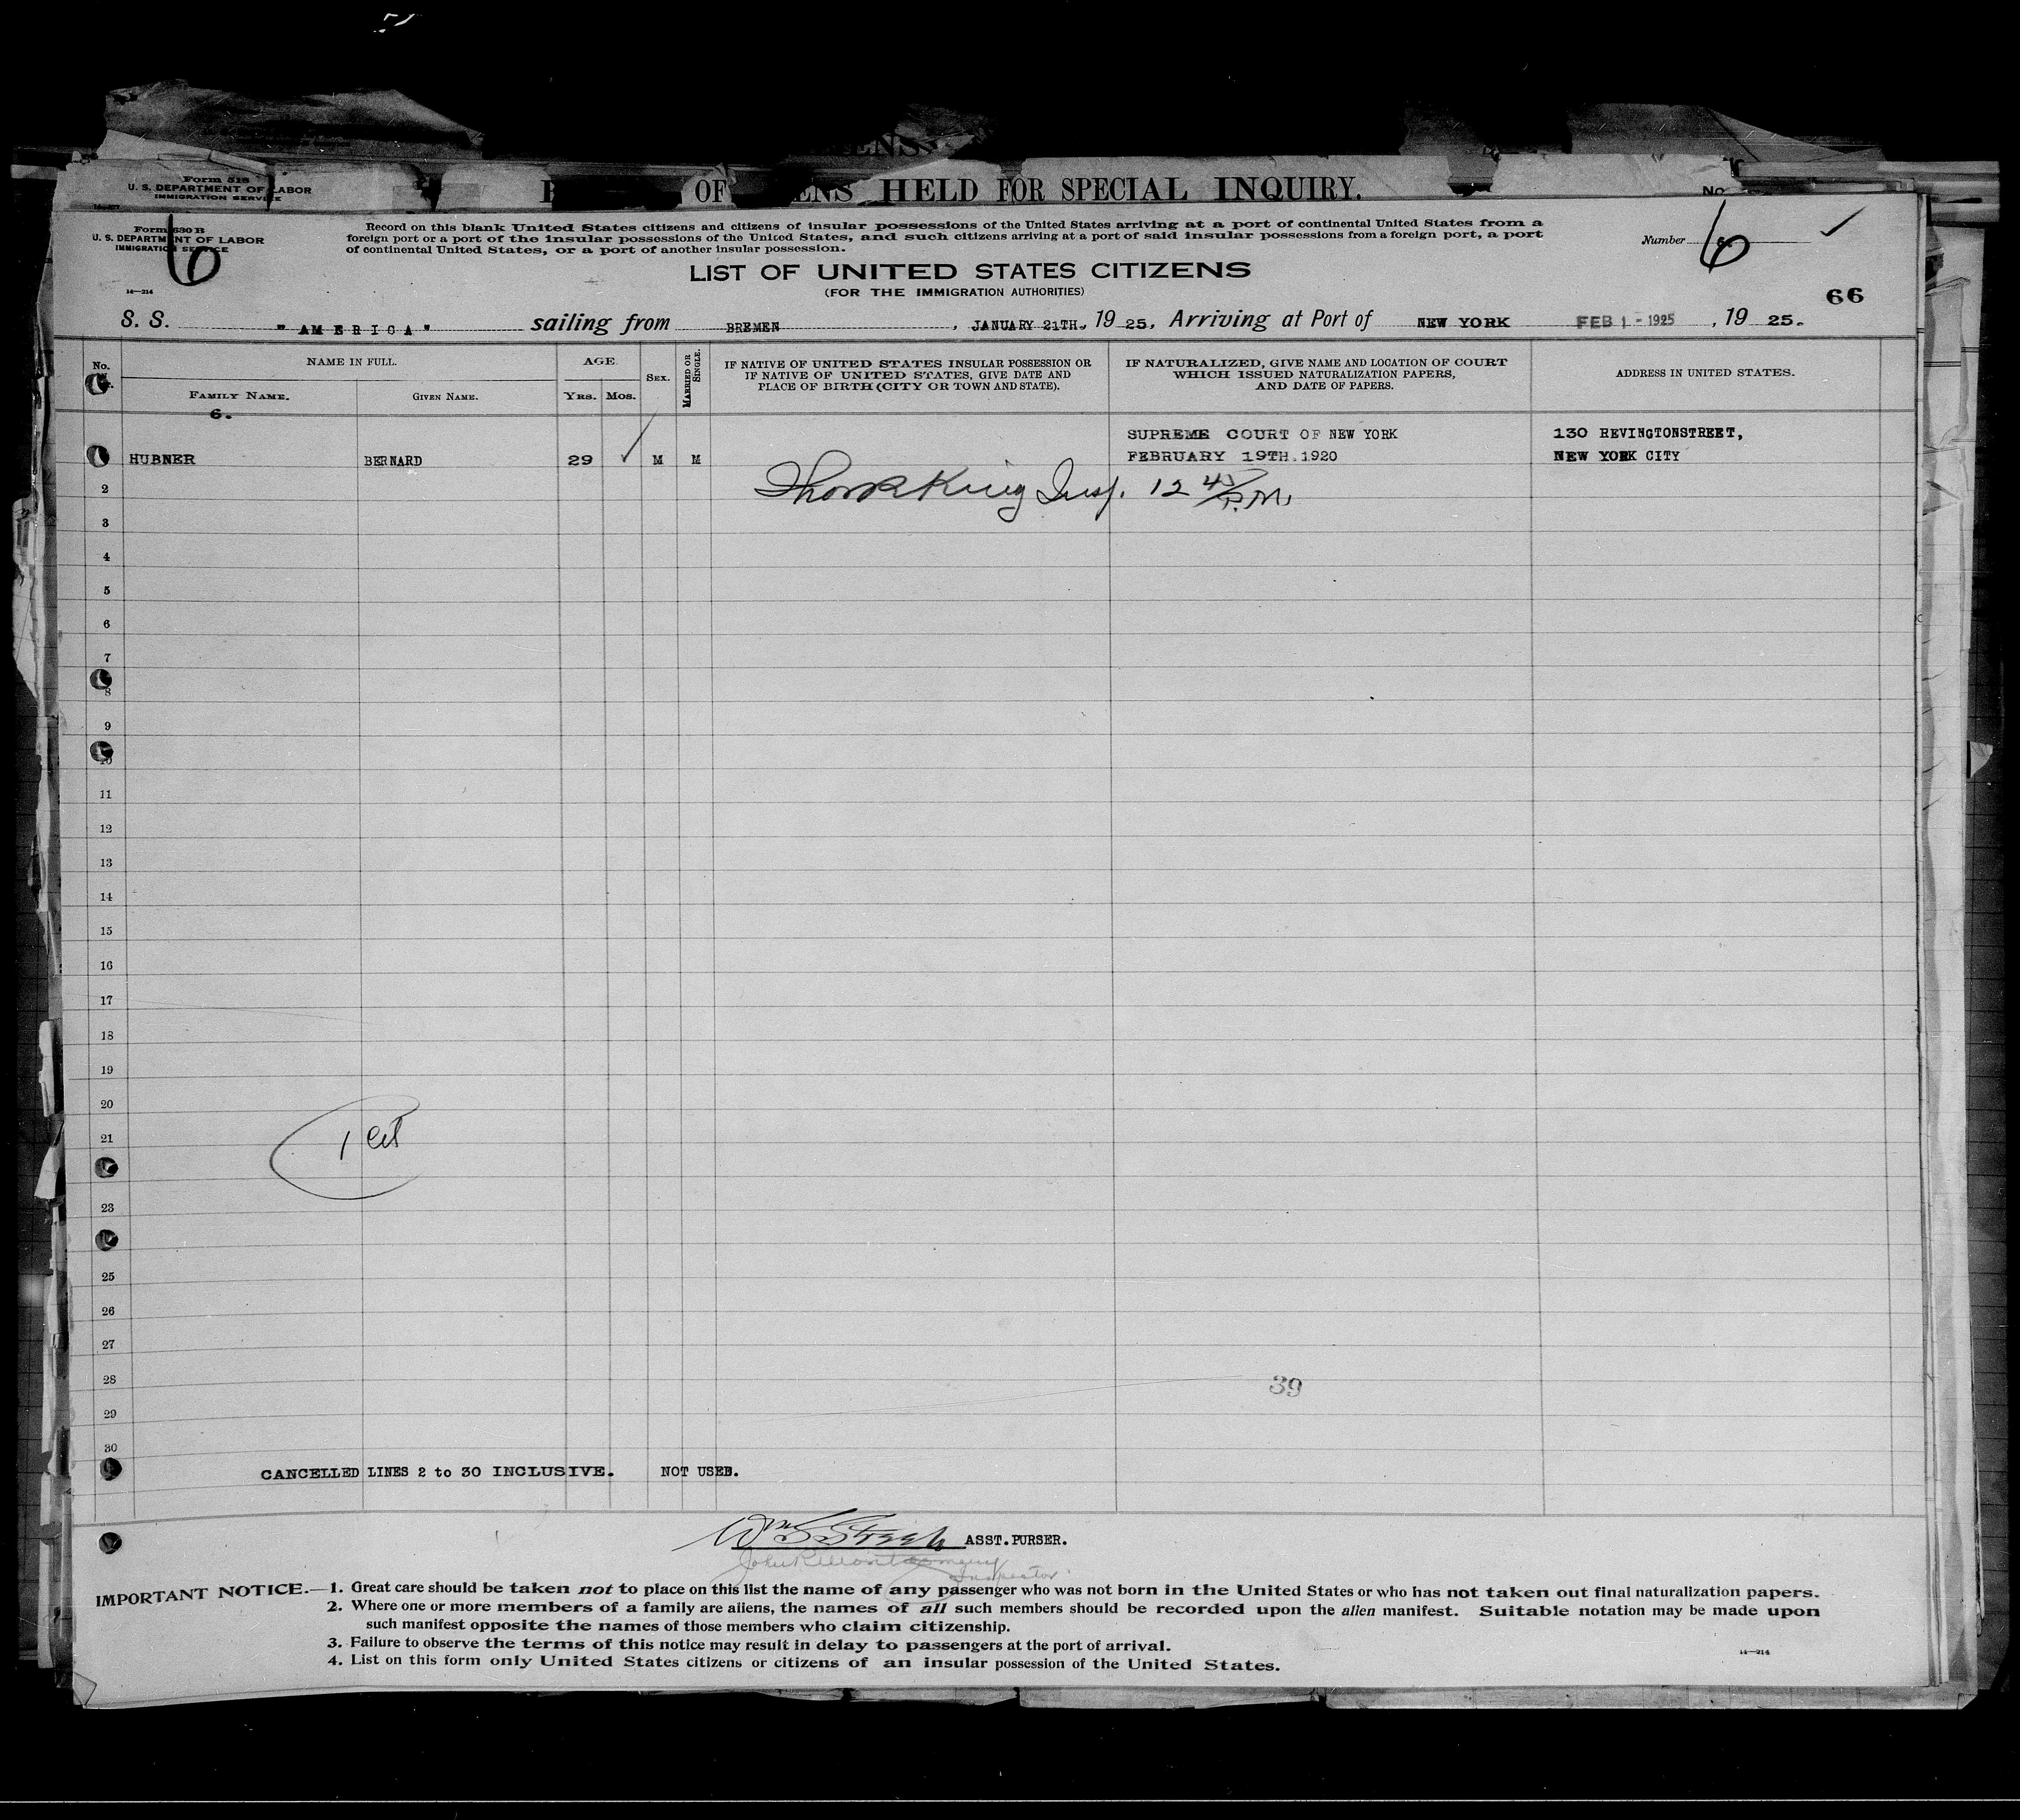 Form 518
U. S. DEPARTMENT OF LABOR
IMMIGRATION SERVICE
OF ENS HELD FOR SPECIAL INQUIRY.
No.
Form 630 B
U. S. DEPARTMENT OF LABOR
IMMIGRATION SERVICE
6
14—214
Record on this blank United States citizens and citizens of insular possessions of the United States arriving at a port of continental United States from a
foreign port or a port of the insular possessions of the United States, and such citizens arriving at a port of said insular possessions from a foreign port, a port
of continental United States, or a port of another insular possession.
Number 6
LIST OF UNITED STATES CITIZENS
(FOR THE IMMIGRATION AUTHORITIES)
66
S. S. "AMERICA" sailing from BREMEN, JANUARY 21TH, 1925, Arriving at Port of NEW YORK FEB 1 - 1925, 1925.
No.
NAME IN FULL.
FAMILY NAME.
GIVEN NAME.
AGE.
YRS. MOS.
SEX.
MARRIED OR SINGLE.
IF NATIVE OF UNITED STATES INSULAR POSSESSION OR
IF NATIVE OF UNITED STATES, GIVE DATE AND
PLACE OF BIRTH (CITY OR TOWN AND STATE).
IF NATURALIZED, GIVE NAME AND LOCATION OF COURT
WHICH ISSUED NATURALIZATION PAPERS,
AND DATE OF PAPERS.
ADDRESS IN UNITED STATES.
6.
SUPREME COURT OF NEW YORK 130 REVINGTONSTREET,
HUBNER BERNARD 29 M M FEBRUARY 19TH.1920 NEW YORK CITY
2 King Insp. 12 45 P.M.
3
4
5
6
7
8
9
10
11
12
13
14
15
16
17
18
19
20
21 1 cit
23
25
26
27
28 39
29
30
CANCELLED LINES 2 to 30 INCLUSIVE. NOT USED.
ASST.PURSER.
Inspector
IMPORTANT NOTICE.—1. Great care should be taken not to place on this list the name of any passenger who was not born in the United States or who has not taken out final naturalization papers.
2. Where one or more members of a family are aliens, the names of all such members should be recorded upon the alien manifest. Suitable notation may be made upon
such manifest opposite the names of those members who claim citizenship.
3. Failure to observe the terms of this notice may result in delay to passengers at the port of arrival.
4. List on this form only United States citizens or citizens of an insular possession of the United States.
14—214